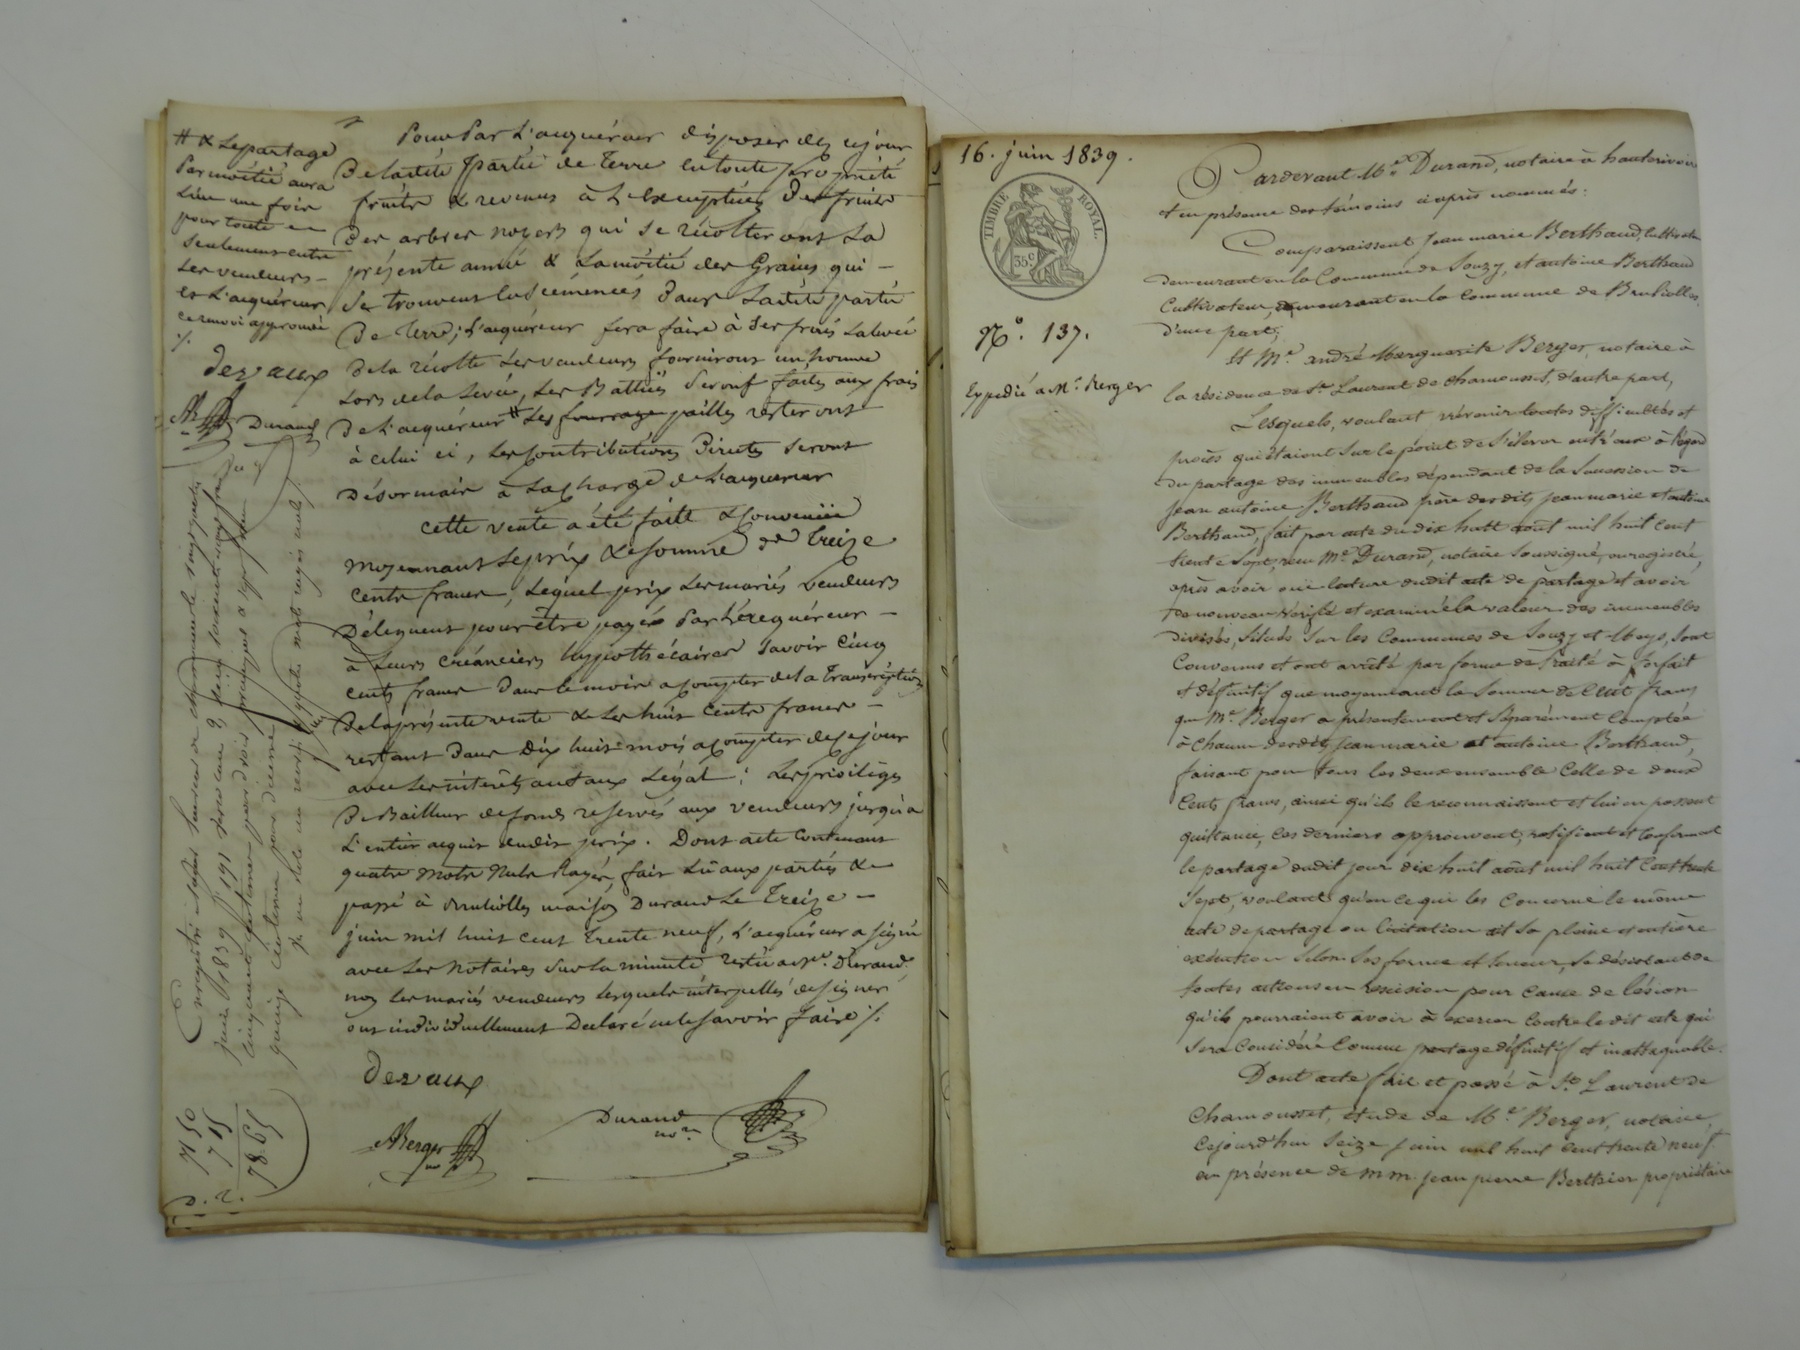 # & Le partage
par moitié aura
Lieu une fois
pour toute et
seulement entre
Les vendeurs
et L'acquéreur
ce renvoi approuvé
./.
Devaux
Durand
Pour Par L'acquéreur disposer dez ce jour
De ladite partie de terre en toute propriété
fruits & revenus à L'exception des fruits
des arbres noyers qui se récolteront La
présente année & La moitié des Grains qui
se trouvent Ensémencés dans Ladite partie
De terre; L'acquéreur fera faire à ses frais La levée
De la récolte Les vendeurs fourniront un homme
Lors de la Levée, Les Battües seront faites aux frais
De L'acquéreur # Les fourrage pailles resteront
à celui ci, Les Contributions Directes seront
Désormais à La Charge de L'acquereur
Cette vente a été faite & Convenüe
moyennant Le prix & Somme de Treize
cents francs, Lequel prix Les mariés vendeurs
Déleguent pour être payés Par L'acquéreur
à Leurs Créanciers hypothécaires savoir Cinq
cents francs dans le mois a Compter de La transcription
De la présente vente & Les huit cents francs
restant dans Dix huit mois a Compter de ce jour
avec Les intérêts au taux Légal; Les privilèges
De Bailleur de fonds reservés aux vendeurs jusqu'a
L'entier acquis dudit prix. Dont acte Contenant
quatre mots Nuls Rayés, fait Lû aux parties &
passé à Brullioles maison Durand Le Treize
juin mil huit cent trente neuf, L'acquéreur a signé
avec Les Notaires sur La minute restée a Me. Durand
non Les mariés vendeurs Lesquels interpellés de signer
ont individuellement Declaré ne le savoir faire ./.
Devaux
ABerger
Durand
nore
71 50
7 15
78.65
16. juin 1839.
TIMBRE ROYAL.
35c
No. 137.
Expedié a Me. Berger
Pardevant Me. Durand, notaire à hauterivoire
et en présence des témoins ci après nommés:
Comparaissent Jean marie Berthaud, Cultivateur
demeurant en la Commune de Souzy, et antoine Berthaud
Cultivateur, demeurant en la Commune de Brulioles,
d'une part;
Et Me. andré Marguerite Berger, notaire à
la résidence de St. Laurent de Chamousset, d'autre part,
Lesquels, voulant prévenir toutes difficultés et
procès qui étaient sur le point de s'élever entr'eux à l'égard
du partage des immeubles dépendant de la Succession de
jean antoine Berthaud père desdits jean marie et antoine
Berthaud, fait par acte du dix huit août mil huit cent
trente Sept, reçu Me. Durand, notaire Soussigné, enregistré,
après avoir ouï lecture dudit acte de partage et avoir
de nouveau vérifié et examiné la valeur des immeubles
divisés, situés sur les Communes de Souzy et Meys, sont
Convenus et ont arrêté par forme de traité à forfait
et définitif que moyennant la Somme de Cent francs
que Me. Berger a présentement et séparément Comptée
à chacun desdits jean marie et antoine Berthaud,
faisant pour tous les deux ensemble Celle de deux
Cents francs, ainsi qu'ils le reconnaissent et lui en passent
quittance, Ces derniers approuvent, ratifient et Confirment
le partage dudit jour dix huit août mil huit Cent trente
Sept, voulant qu'en ce qui les Concerne le même
acte de partage ou licitation ait sa pleine et entière
exécution selon ses forme et teneur, se désistant de
toutes actions en rescision pour Cause de lésion
qu'ils pourraient avoir à exercer Contre ledit acte qui
sera Considéré Comme partage définitif et inattaquable.
Dont acte fait et passé à St. Laurent de
Chamousset, étude de Me. Berger, notaire,
Cejourd'hui seize juin mil huit Cent trente neuf
en présence de m.m. jean pierre Berthier propriétaire